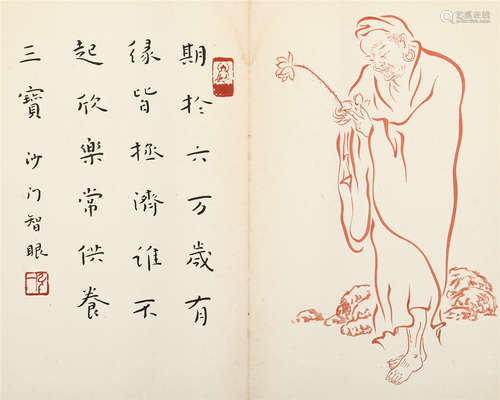 期於六万歲有
緣皆拯濟谁不
起欣樂常供養
三寶
沙门智眼